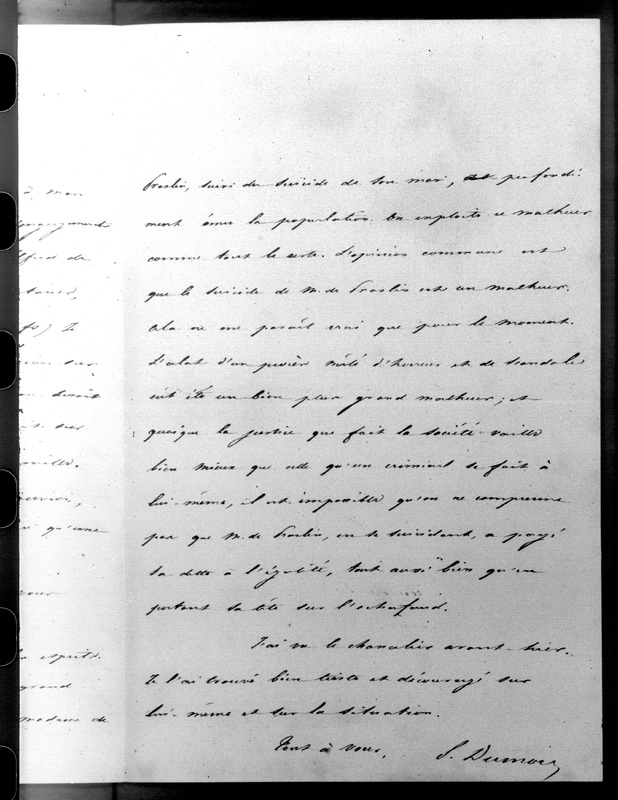 à mon
Praslin, suivi du suicide de son mari, a profondé-
ment ému la population. On exploite ce malheur
comme tout le reste. L'opinion commune est
que le suicide de M. de Praslin est un malheur.
Cela ne me paraît vrai que pour le moment.
L'éclat d'un procès mêlé d'horreur et de scandale
eût été un bien plus grand malheur ; et
quoique la justice que fait la société vaille
bien mieux que celle qu'un criminel se fait à
lui-même, il est impossible qu'on ne comprenne
pas que M. de Praslin, en se suicidant, a payé
sa dette à l'égalité, tout aussi bien qu'en
portant sa tête sur l'échafaud.
J'ai vu le chancelier avant-hier.
Je l'ai trouvé bien triste et découragé sur
lui-même et sur la situation.
Tout à vous,
S. Dumon
de
Je
sur
sur
qu'une
esprits.
grand
madame de